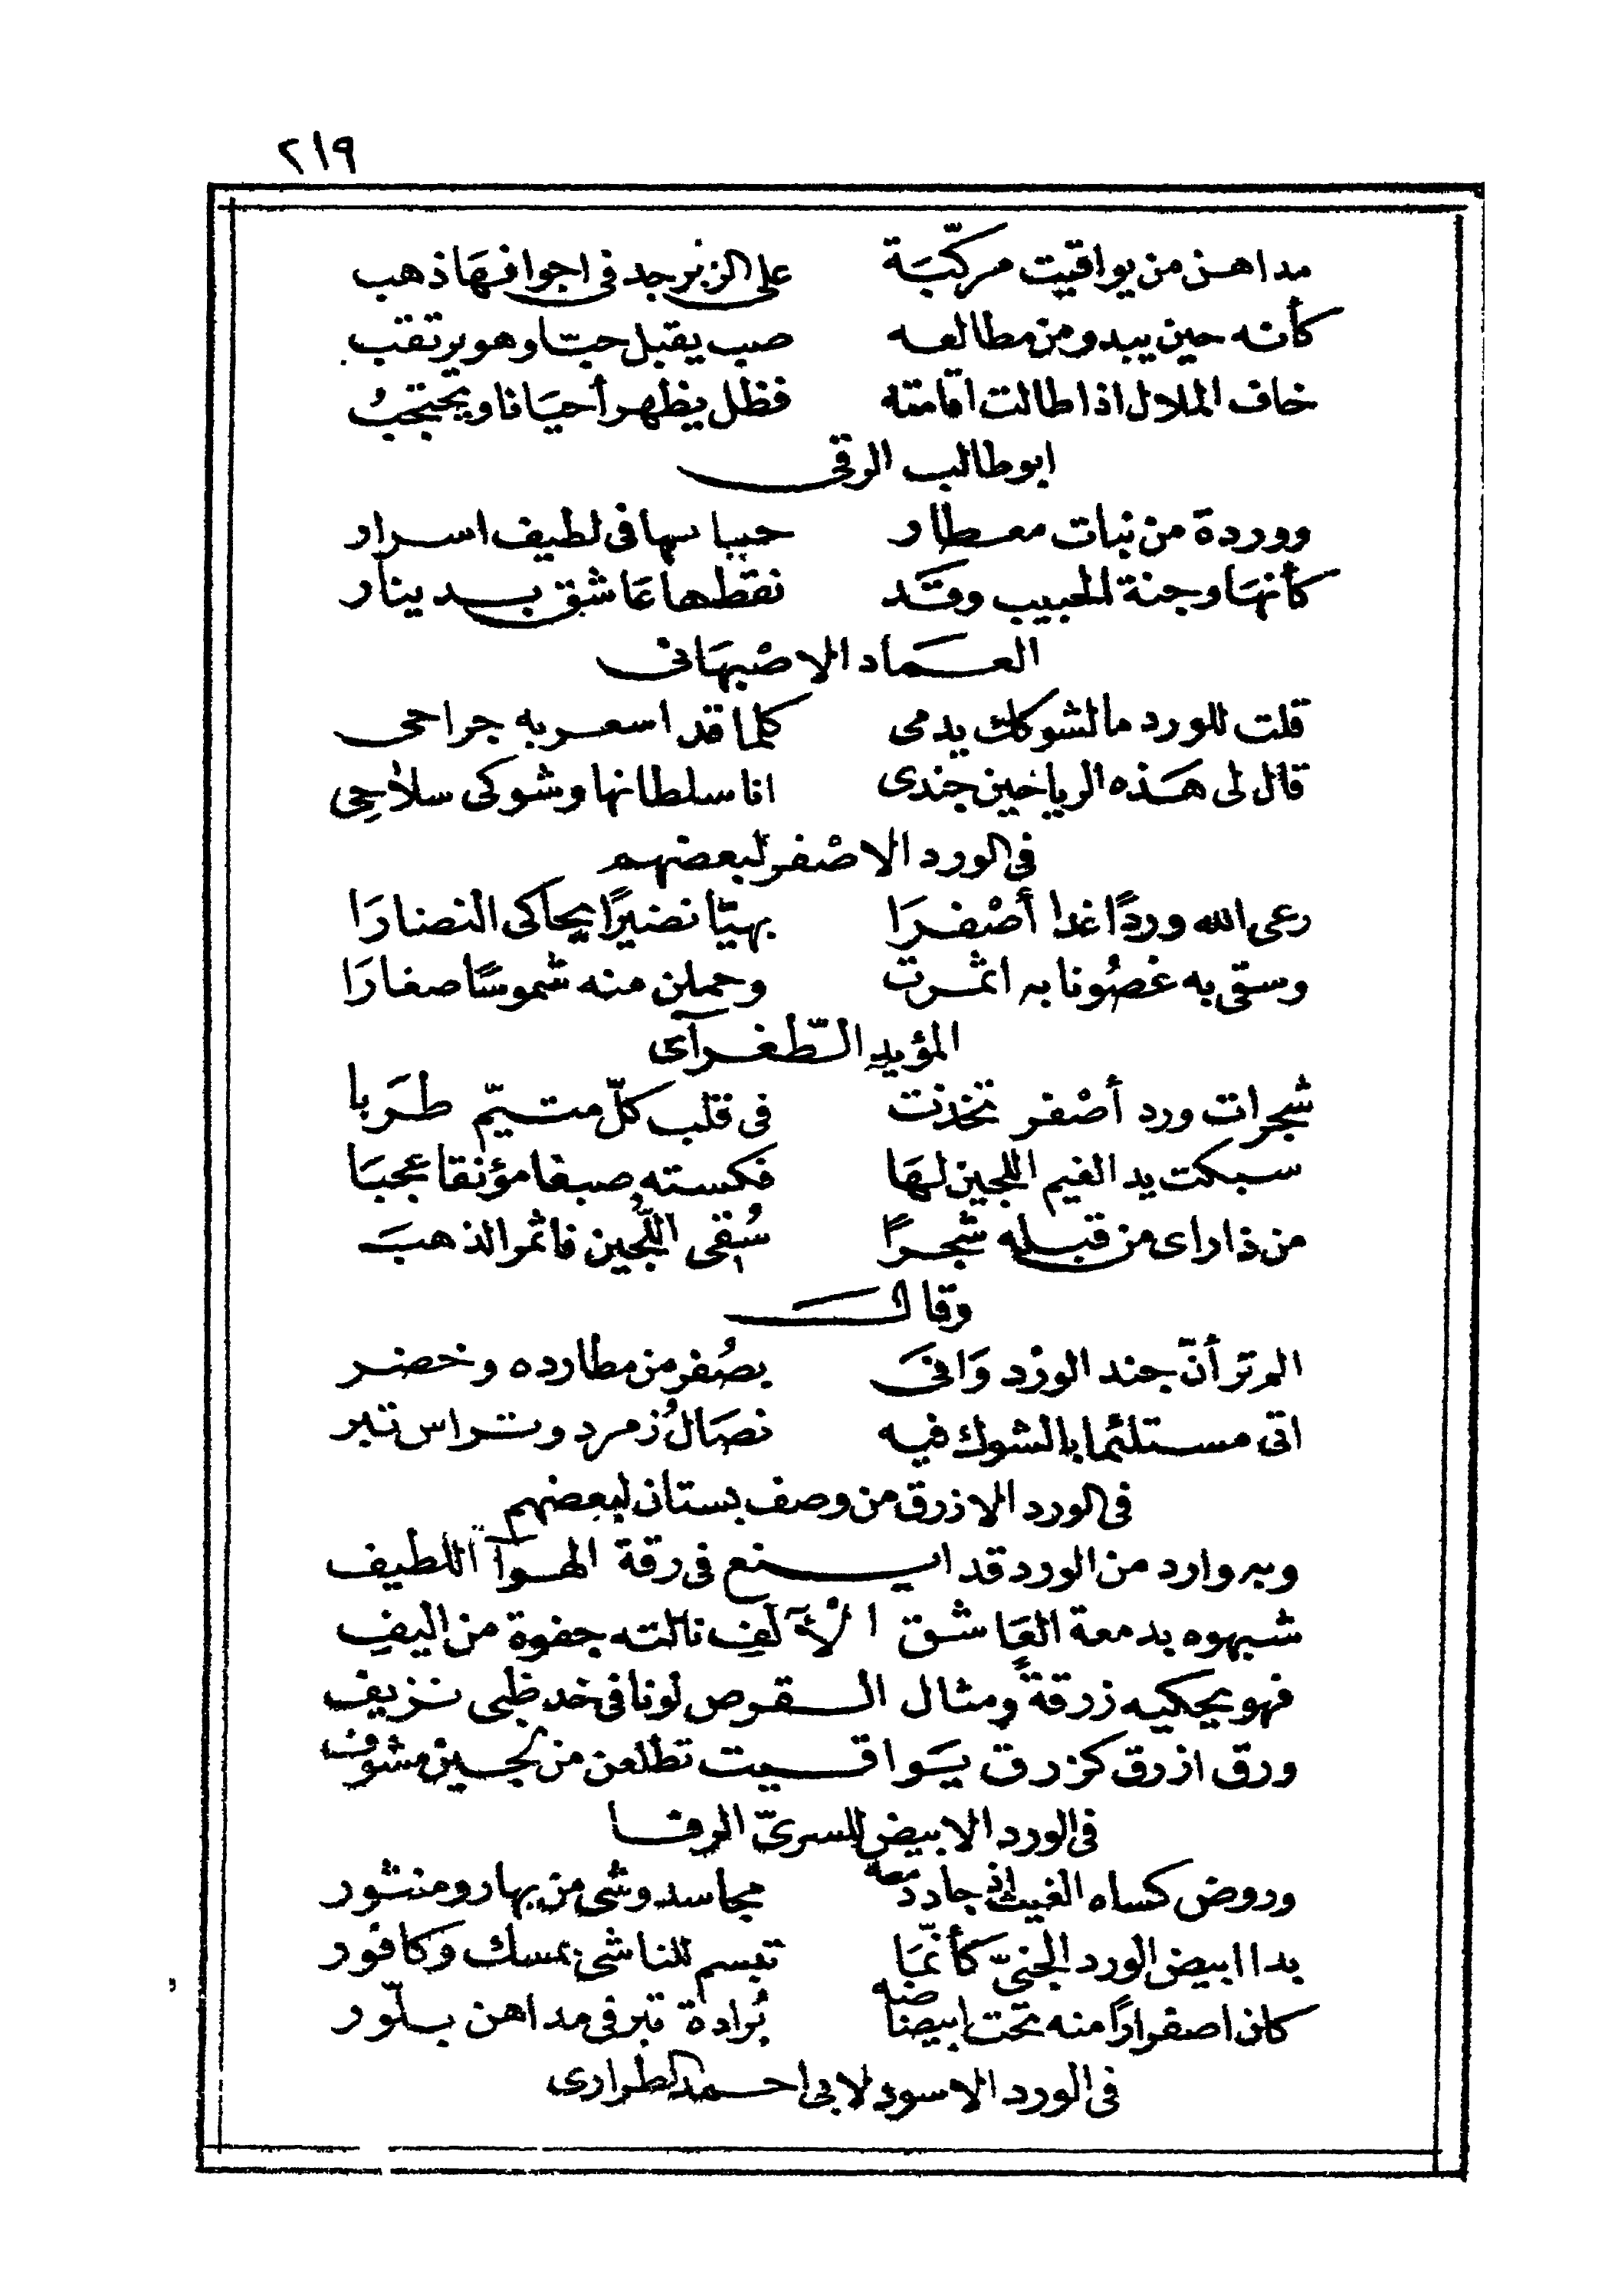 ٢١٩
مداهن من يواقيت مركّبَة على الزبرجد فى اجوافهَا ذهب
كأنه حين يبدو من مطالعه صب يقبل حبّا وهو يرتقب
خاف الملال اذا طالت اقامته فظل يظهر أحيَانا ويحتجبُ
ابو طالب الرقى
ووردة من نبات معطار حيا بها فى لطيف اسرار
كأنهَا وجنة الحبيب وقَد نقطها عَاشق بدينار
العمَاد الاصْبهَانى
قلت للورد ما لشوكك يدمى كلما قد اسعر به جراحى
قال لى هَذه الرياحين جندى انا سلطانها وشوكى سلاحِى
فى الورد الاصْفر لبعضهم
رعى الله وردًا غدا أصْفرَا بهيّا نضيرًا يحاكى النضارَا
وسقى به غصُونا به اثمرت وحملن منه شموسًا صغارَا
المؤيد الطّغرآى
شجرات ورد أصْفر تخذت فى قلب كلّ متيّم طرَبا
سبكت يد الغيم اللجين لهَا فكسته صبغا مؤنقا عجبَا
من ذا راى من قبله شجرًا سُقى اللّجين فاثمر الذهبَ
وقالَ
الم تر أنّ جند الورْد وَافىَ بصُفر من مطارده وخضر
اتى مستلئما بالشوك فيه نصَالُ زمرد وتراس تبر
فى الورد الازرق من وصف بستان لبعضهم
وبه وارد من الورد قد اينع فى رقة الهوآ اللطيف
شبهوه بدمعة العَاشق الآلف نالته جفوة من اليفِ
فهو يحكيه زرقةً ومثال القرص لونا فى خد ظبى نزيف
ورق ازرق كزرق يَواقيت تطلعن من لجين مشوف
فى الورد الابيض للسرىّ الرفا
وروض كساه الغيث اذ جاد دمعه مجاسد وشى من بهار ومنثور
بدا ابيض الورد الجنىّ كأنّمَا تبسم للناشى بمسك وكافور
كان اصفرارًا منه تحت ابيضاضه بُرادة تبر فى مداهن بلّور
فى الورد الاسود لابى احمد الطرارى